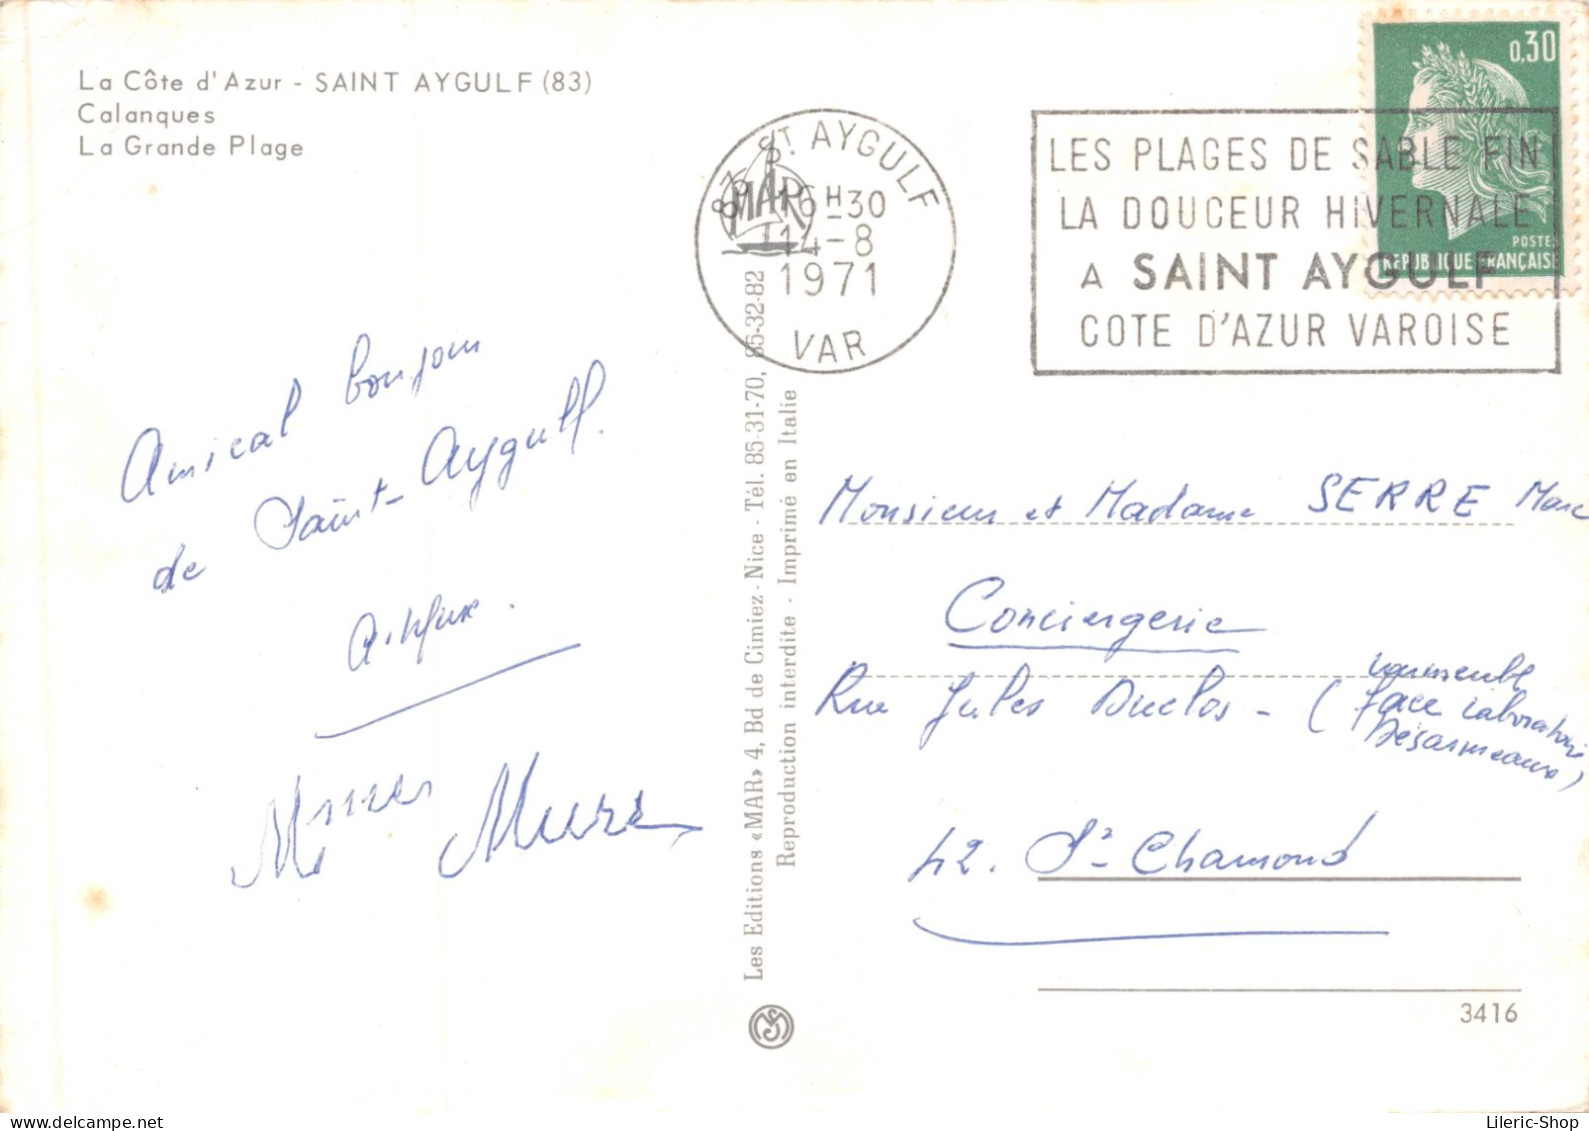 La Côte d'Azur - SAINT AYGULF (83)
Calanques
La Grande Plage
Amical bonjour
de Saint-Aygulf.
Mmes Mure
Les Editions «MAR» 4, Bd de Cimiez - Nice - Tél. 85-31-70, 85-32-82
Reproduction interdite - Imprimé en Italie
MAR
83 ST AYGULF
16H30
14-8
1971
VAR
LES PLAGES DE SABLE FIN
LA DOUCEUR HIVERNALE
A SAINT AYGULF
COTE D'AZUR VAROISE
0,30
POSTES
REPUBLIQUE FRANÇAISE
Monsieur et Madame SERRE Marc
Conciergerie
Rue Jules Duclos - (
face Laboratoire
Désarmeaux)
42. St Chamond
3416
Lileric-Shop